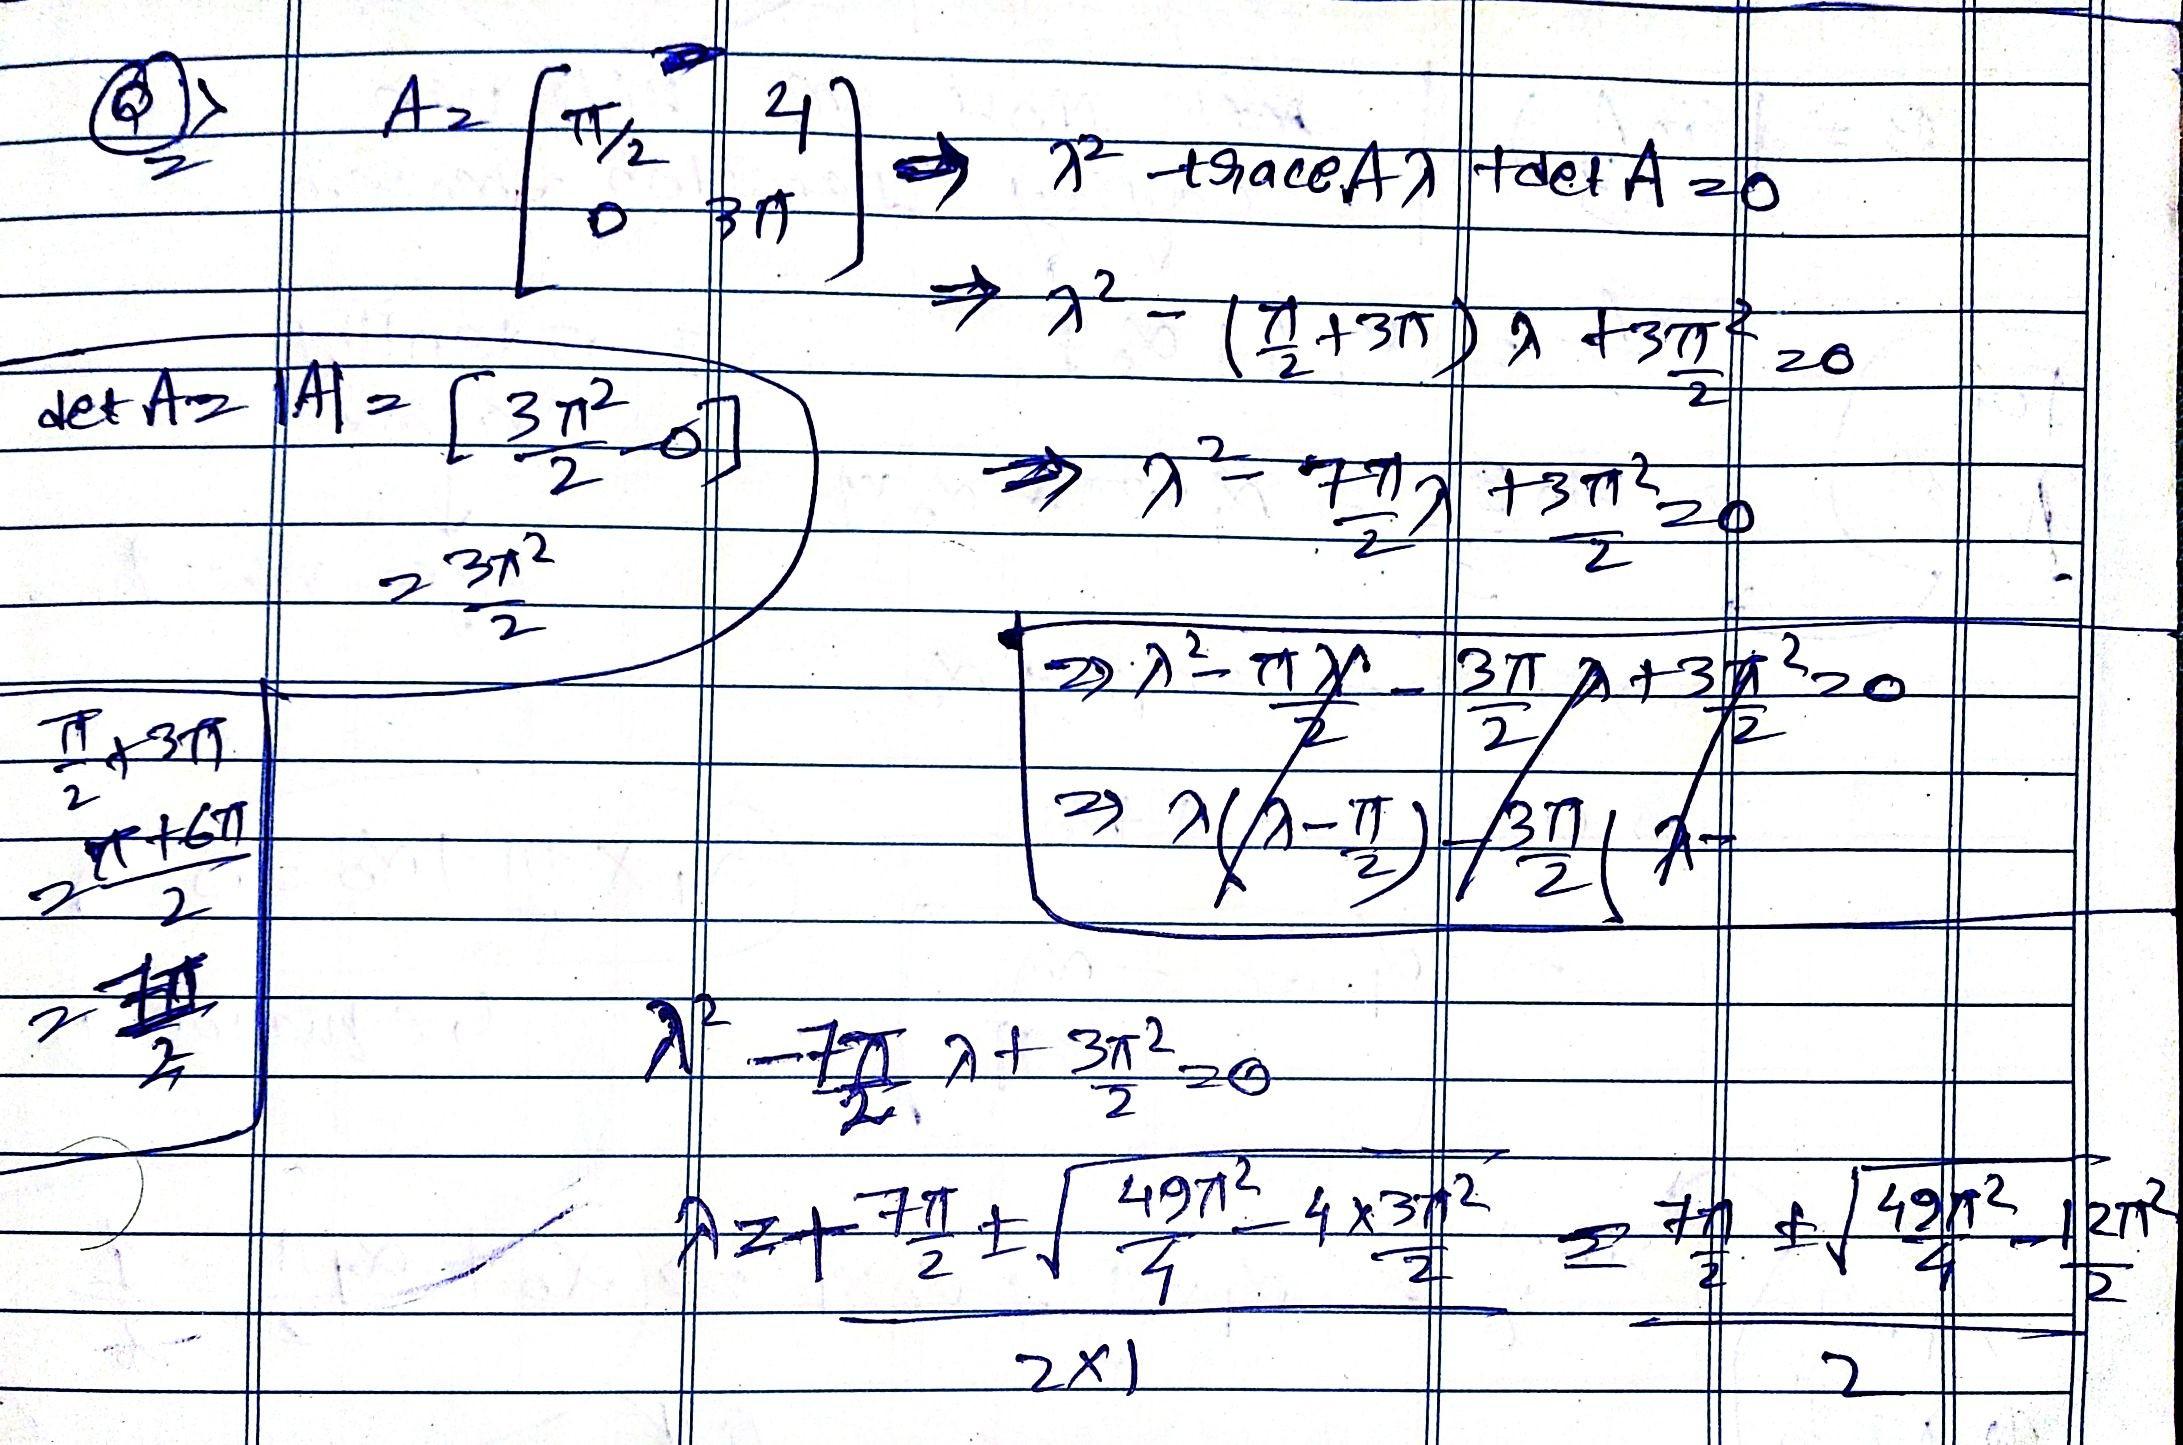 Q> A = [π/2 4
0 3π]
⇒ λ² - trace A λ + det A = 0
⇒ λ² - (π/2 + 3π) λ + 3π²/2 = 0
det A = |A| = [3π²/2 - 0]
= 3π²/2
⇒ λ² - 7π/2 λ + 3π²/2 = 0
⇒ λ² - πλ/2 - 3π/2 λ + 3π²/2 = 0
⇒ λ(λ - π/2) - 3π/2 (λ -
π/2 + 3π
= π + 6π/2
= 7π/2
λ² - 7π/2 λ + 3π²/2 = 0
λ = + 7π/2 ± √(49π²/4 - 4 × 3π²/2) / 2×1 = 7π/2 ± √(49π²/4 - 12π²/2) / 2